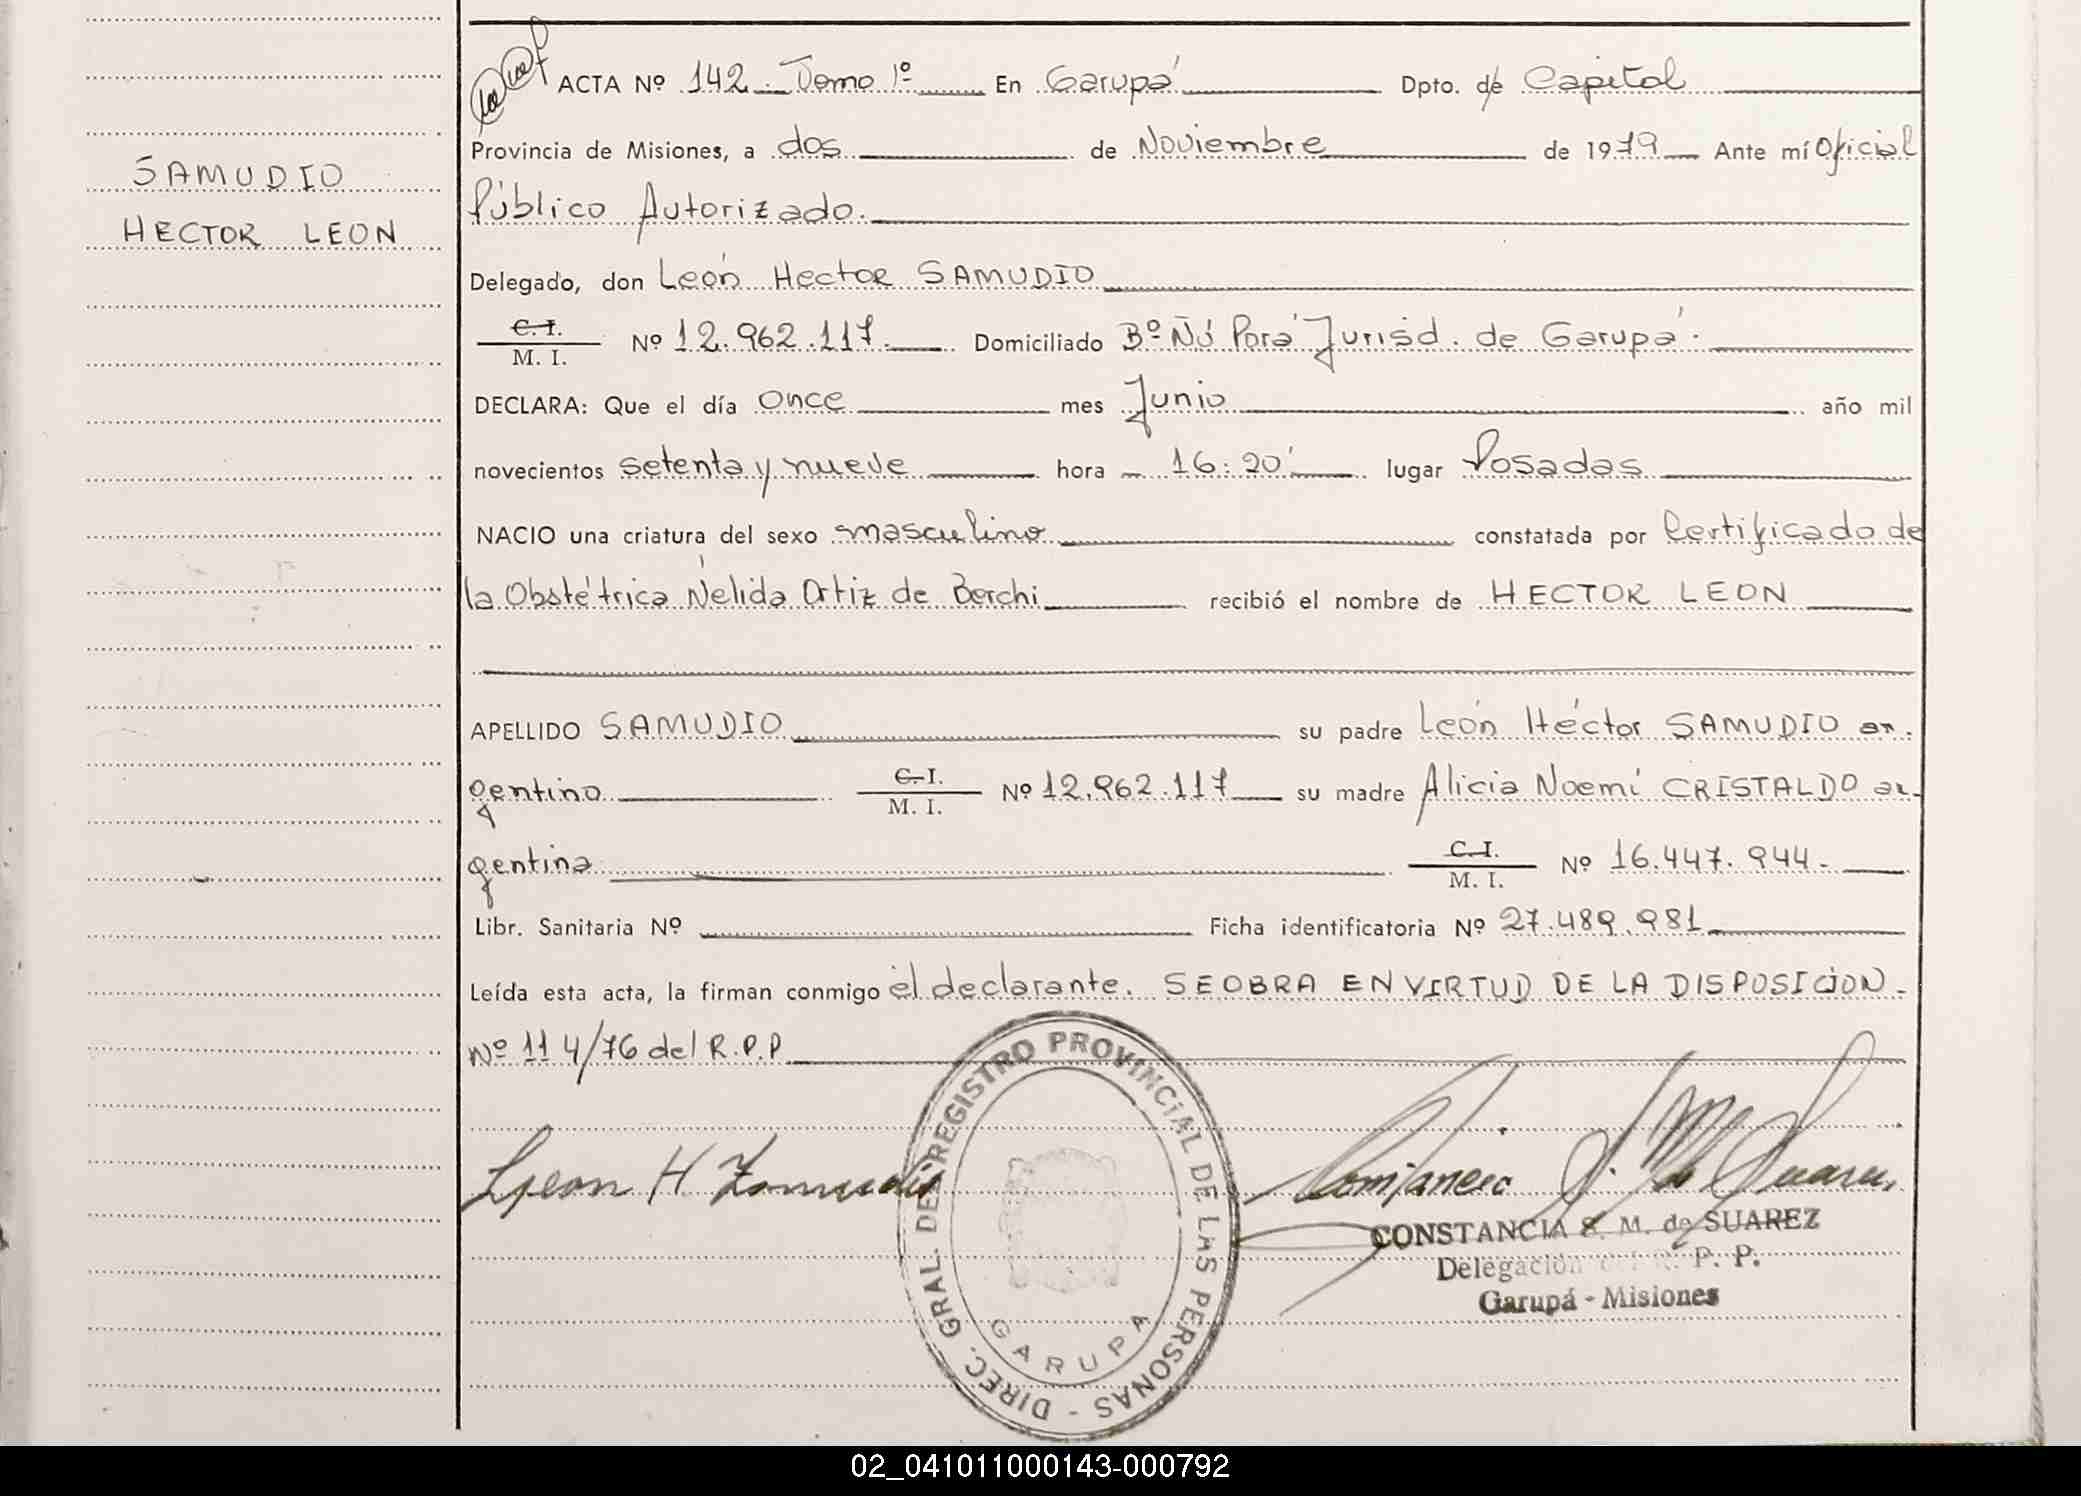 ACTA Nº 142 Tomo 1º En Garupá Dpto. de Capital
Provincia de Misiones, a dos de Noviembre de 1979 Ante mí Oficial
SAMUDIO
Público Autorizado.
HECTOR LEON
Delegado, don León Hector SAMUDIO
C. I.
M. I. Nº 12.962.117. Domiciliado Bº Ñú Porá Jurisd. de Garupá.
DECLARA: Que el día once mes Junio año mil
novecientos setenta y nueve hora 16:20' lugar Posadas
NACIO una criatura del sexo masculino constatada por Certificado de
la Obstétrica Nélida Ortiz de Berchi recibió el nombre de HECTOR LEON
APELLIDO SAMUDIO su padre León Héctor SAMUDIO ar.
gentino C.I. M. I. Nº 12.962.117 su madre Alicia Noemí CRISTALDO ar-
gentina C.I. M. I. Nº 16.447.944.
Libr. Sanitaria Nº Ficha identificatoria Nº 27.489.981
Leída esta acta, la firman conmigo el declarante. SE OBRA EN VIRTUD DE LA DISPOSICION
Nº 114/76 del R.P.P.
DIREC. GRAL. DE REGISTRO PROVINCIAL DE LAS PERSONAS -
GARUPA
Leon H Zamudio
CONSTANCIA S. M. de SUAREZ
Delegación del R. P. P.
Garupá - Misiones
02_041011000143-000792